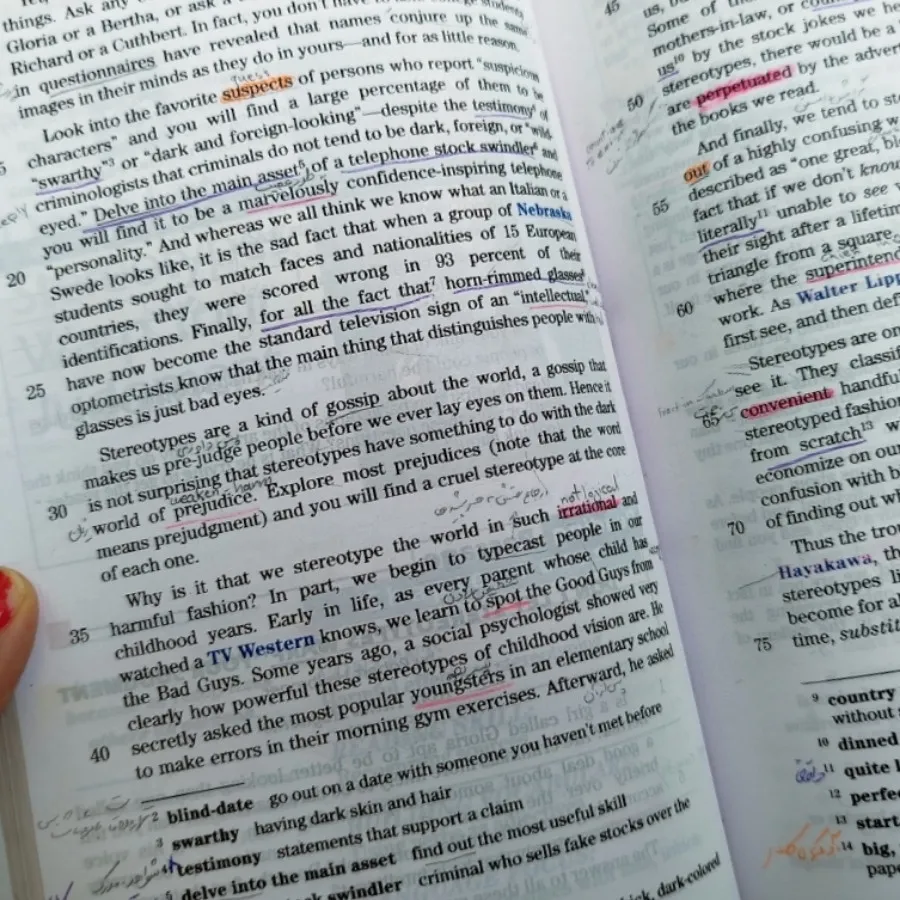 things. Ask any
Gloria or a Bertha, or ask a
Richard or a Cuthbert. In fact, you don't have to
in questionnaires have revealed that names conjure up the same
images in their minds as they do in yours—and for as little reason.
Look into the favorite suspects of persons who report "suspicious
characters" and you will find a large percentage of them to be
"swarthy"³ or "dark and foreign-looking"—despite the testimony⁴ of
criminologists that criminals do not tend to be dark, foreign, or "wild-
eyed." Delve into the main asset⁵ of a telephone stock swindler⁶ and
you will find it to be a marvelously confidence-inspiring telephone
"personality." And whereas we all think we know what an Italian or a
20 Swede looks like, it is the sad fact that when a group of Nebraska
students sought to match faces and nationalities of 15 European
countries, they were scored wrong in 93 percent of their
identifications. Finally, for all the fact that⁷ horn-rimmed glasses
have now become the standard television sign of an "intellectual,"
25 optometrists know that the main thing that distinguishes people with
glasses is just bad eyes.
Stereotypes are a kind of gossip about the world, a gossip that
makes us pre-judge people before we ever lay eyes on them. Hence it
is not surprising that stereotypes have something to do with the dark
weaken harm
30 world of prejudice. Explore most prejudices (note that the word
means prejudgment) and you will find a cruel stereotype at the core
of each one.
not logical
Why is it that we stereotype the world in such irrational and
harmful fashion? In part, we begin to typecast people in our
35 childhood years. Early in life, as every parent whose child has
watched a TV Western knows, we learn to spot the Good Guys from
the Bad Guys. Some years ago, a social psychologist showed very
clearly how powerful these stereotypes of childhood vision are. He
secretly asked the most popular youngsters in an elementary school
40 to make errors in their morning gym exercises. Afterward, he asked
² blind-date go out on a date with someone you haven't met before
³ swarthy having dark skin and hair
⁴ testimony statements that support a claim
⁵ delve into the main asset find out the most useful skill
swindler criminal who sells fake stocks over the
dark-colored
45 us, bu
Some of
mothers-in-law, or
us¹⁰ by the stock jokes we he
stereotypes, there would be a
are perpetuated by the adver
50 the books we read.
And finally, we tend to st
out of a highly confusing w
described as "one great, bl
55 fact that if we don't know
literally¹¹ unable to see
their sight after a lifetim
triangle from a square
where the superintend
60 work. As Walter Lipp
first see, and then def
Stereotypes are on
see it. They classif
65 convenient handfu
stereotyped fashion
from scratch¹³ w
economize on our
confusion with b
70 of finding out wh
Thus the tro
Hayakawa, th
stereotypes li
become for al
75 time, substit
⁹ country
without
¹⁰ dinned
¹¹ quite l
¹² perfe
¹³ start
¹⁴ big,
pape